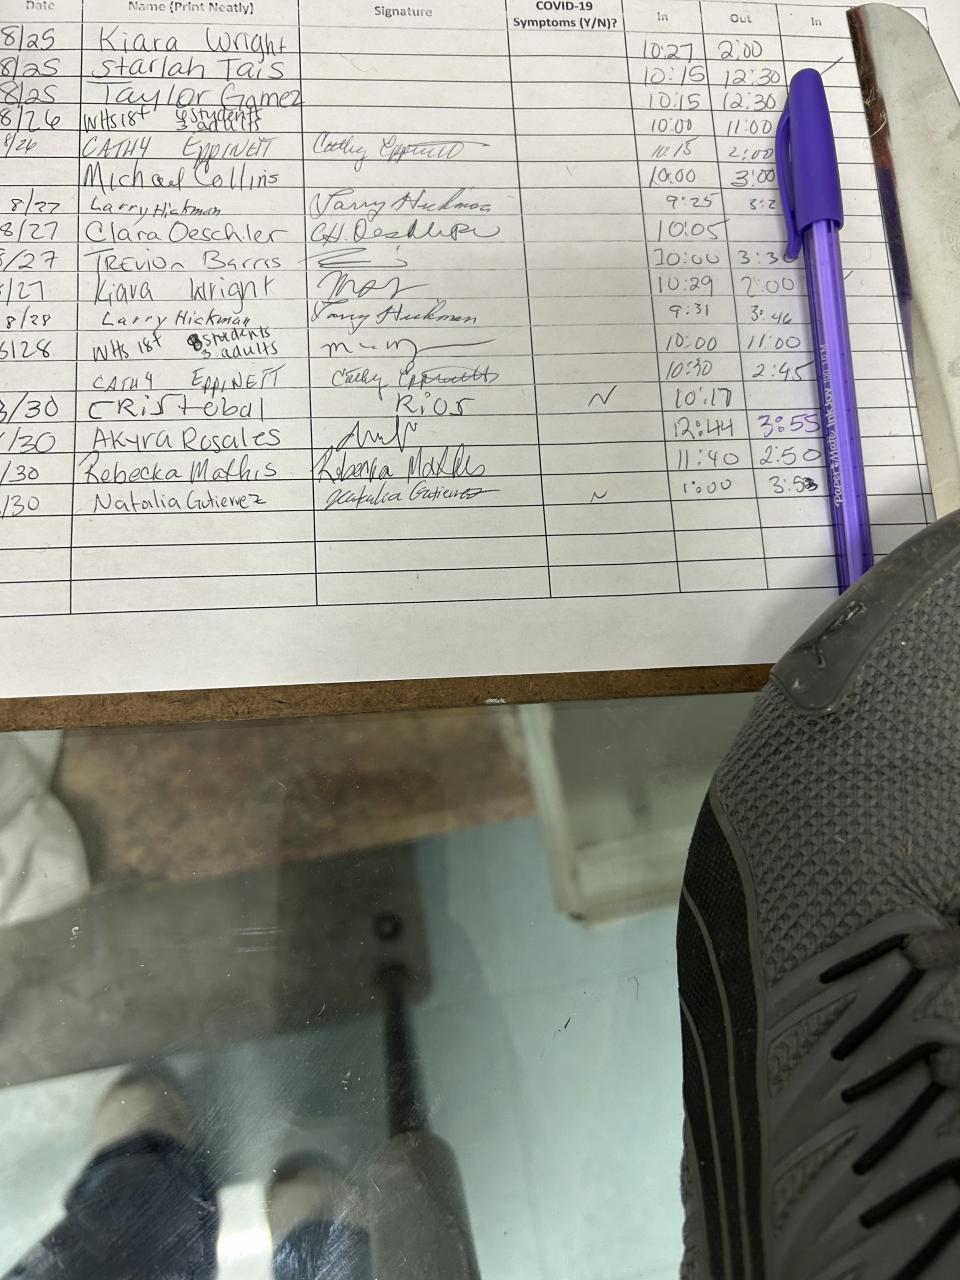 Date Name (Print Neatly) Signature COVID-19 Symptoms (Y/N)? In Out In
8/25 Kiara Wright 10:27 2:00
8/25 Starlah Tais 10:15 12:30
8/25 Taylor Gamez 10:15 12:30
8/26 WHS 18+ students 3 adults 10:00 11:00
8/26 CATHY EPPINETT Cathy Eppinett 10:15 2:00
Michael Collins 10:00 3:00
8/27 Larry Hickman Larry Hickman 9:25 3:2
8/27 Clara Oeschler C.H. Oeschler 10:05
/27 TREVION Barrs 10:00 3:30
/27 Kiara Wright 10:29 2:00
8/28 Larry Hickman Larry Hickman 9:31 3:46
8/28 WHS 18+ 8 students 3 adults 10:00 11:00
CATHY EPPINETT Cathy Eppinett 10:30 2:45
/30 CRiStobal Rios N 10:17
/30 AKyra Rosales 12:44 3:55
/30 Rebecka Mathis Rebecka Mathis 11:40 2:50
/30 Natalia Gutierrez Natalia Gutierrez N 1:00 3:53
Paper Mate InkJoy 100 1.0 M